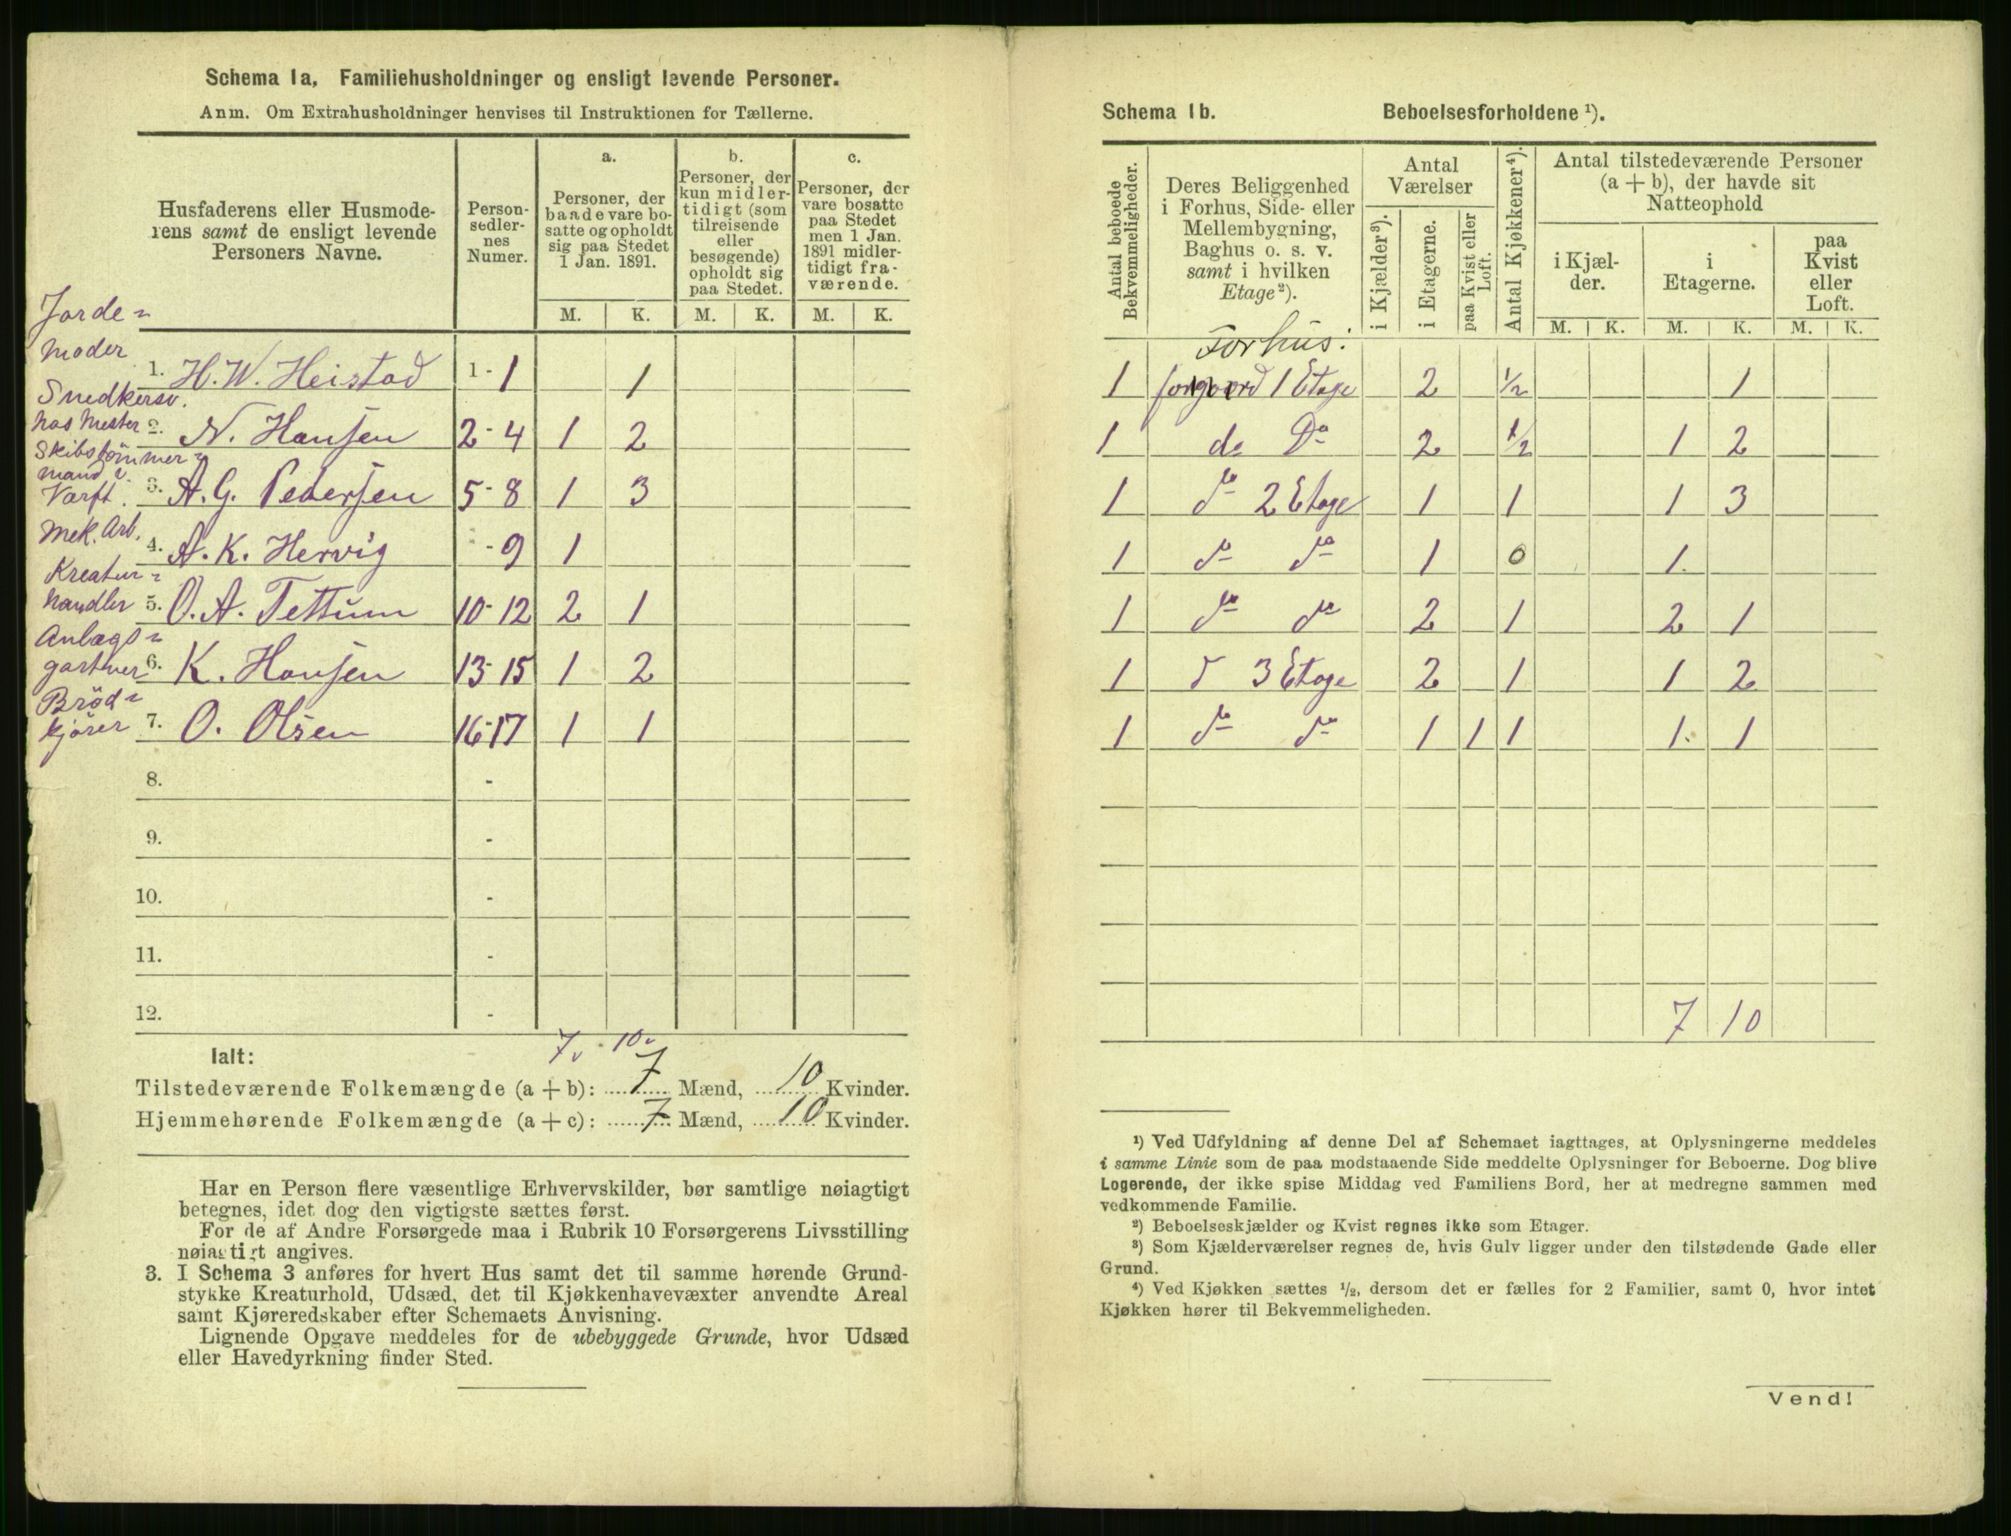 Schema 1a, Familiehusholdninger og ensligt levende Personer.
Anm. Om Extrahusholdninger henvises til Instruktionen for Tællerne.
Husfaderens eller Husmode-
rens samt de ensligt levende
Personers Navne.
Person-
sedler-
nes
Numer.
a.
Personer, der
baade vare bo-
satte og opholdt
sig paa Stedet
1 Jan. 1891.
b.
Personer, der
kun midler-
tidigt (som
tilreisende
eller
besøgende)
opholdt sig
paa Stedet.
c.
Personer, der
vare bosatte
paa Stedet
men 1 Jan.
1891 midler-
tidigt fra-
værende.
M. K. M. K. M. K.
Jorde-
moder
1. H. W. Heistad 1-1 1
Snedkersv.
hos Mester
2. N. Hansen 2-4 1 2
Skibstömmer-
mand v.
Værft.
3. A. G. Pedersen 5-8 1 3
Mek. Arb.
4. A. K. Hervig -9 1
Kreatur-
handler
5. O. A. Tettum 10-12 2 1
Anlægs-
gartner
6. K. Hansen 13-15 1 2
Bröd-
kjører
7. O. Olsen 16-17 1 1
8. -
9. -
10. -
11. -
12. -
7 10
Ialt:
Tilstedeværende Folkemængde (a + b): 7 Mænd, 10 Kvinder.
Hjemmehørende Folkemængde (a + c): 7 Mænd, 10 Kvinder.
Har en Person flere væsentlige Erhvervskilder, bør samtlige nøiagtigt
betegnes, idet dog den vigtigste sættes først.
For de af Andre Forsørgede maa i Rubrik 10 Forsørgerens Livsstilling
nøiagtigt angives.
3. I Schema 3 anføres for hvert Hus samt det til samme hørende Grund-
stykke Kreaturhold, Udsæd, det til Kjøkkenhavevæxter anvendte Areal
samt Kjøreredskaber efter Schemaets Anvisning.
Lignende Opgave meddeles for de ubebyggede Grunde, hvor Udsæd
eller Havedyrkning finder Sted.
Schema 1b. Beboelsesforholdene ¹).
Antal beboede
Bekvemmeligheder.
Deres Beliggenhed
i Forhus, Side- eller
Mellembygning,
Baghus o. s. v.
samt i hvilken
Etage ²).
Antal
Værelser
i Kjælder ³).
i Etagerne.
paa Kvist eller
Loft.
Antal Kjøkkener ⁴).
Antal tilstedeværende Personer
(a + b), der havde sit
Natteophold
i Kjæl-
der.
i
Etagerne.
paa
Kvist
eller
Loft.
M. K. M. K. M. K.
Forhus.
1 forgaard 1 Etage 2 ½ 1
1 do Do 2 ½ 1 2
1 do 2 Etage 1 1 1 3
1 do do 1 0 1
1 do do 2 1 2 1
1 d 3 Etage 2 1 1 2
1 do do 1 1 1 1 1
7 10
¹) Ved Udfyldning af denne Del af Schemaet iagttages, at Oplysningerne meddeles
i samme Linie som de paa modstaaende Side meddelte Oplysninger for Beboerne. Dog blive
Logerende, der ikke spise Middag ved Familiens Bord, her at medregne sammen med
vedkommende Familie.
²) Beboelseskjælder og Kvist regnes ikke som Etager.
³) Som Kjælderværelser regnes de, hvis Gulv ligger under den tilstødende Gade eller
Grund.
⁴) Ved Kjøkken sættes ½, dersom det er fælles for 2 Familier, samt 0, hvor intet
Kjøkken hører til Bekvemmeligheden.
Vend!